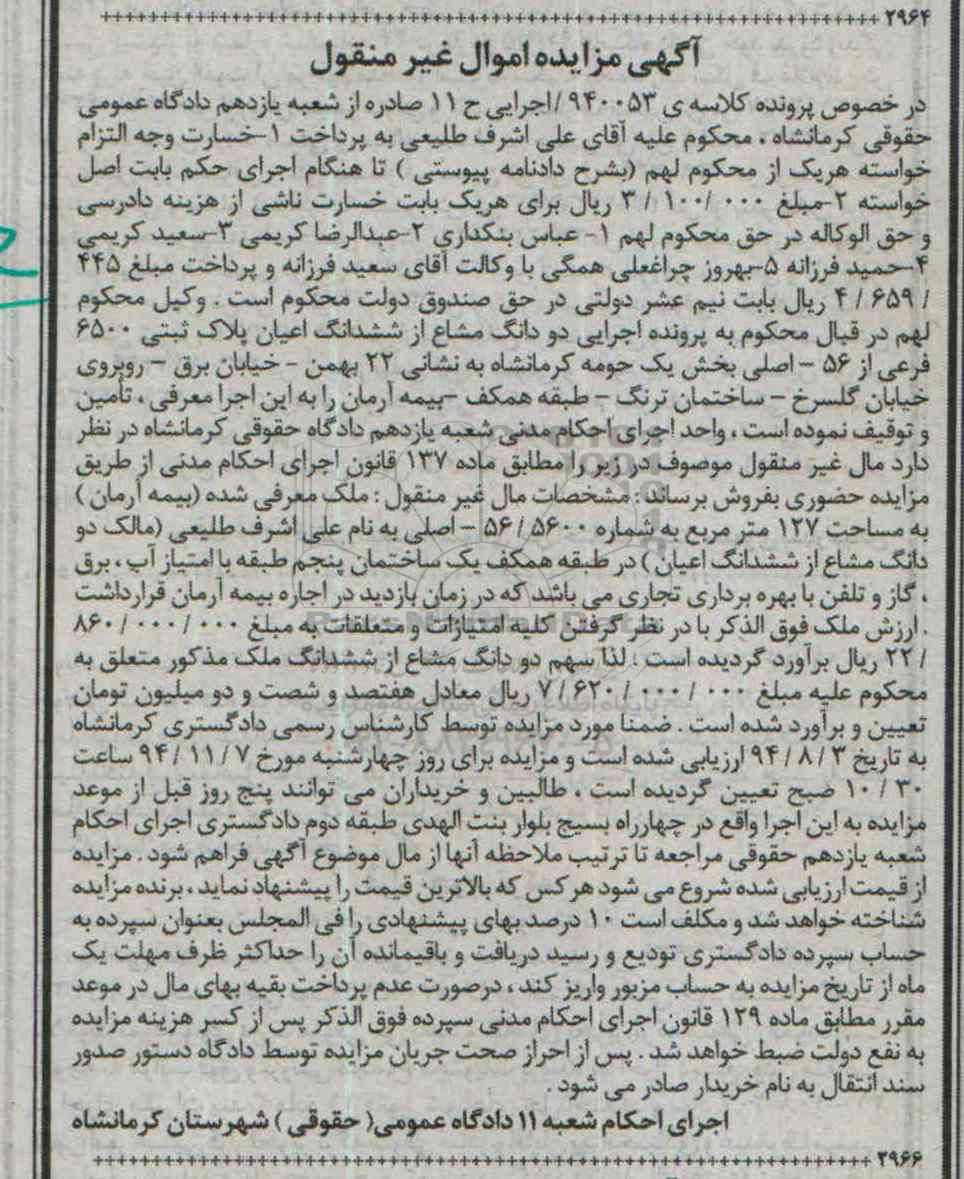 ۲۹۶۴
آگهی مزایده اموال غیر منقول
در خصوص پرونده کلاسه ی ۹۴۰۰۵۳ /اجرایی ح ۱۱ صادره از شعبه یازدهم دادگاه عمومی
حقوقی کرمانشاه ، محکوم علیه آقای علی اشرف طلیعی به پرداخت ۱-خسارت وجه التزام
خواسته هریک از محکوم لهم (بشرح دادنامه پیوستی ) تا هنگام اجرای حکم بابت اصل
خواسته ۲-مبلغ ۰۰۰ /۱۰۰ / ۳ ریال برای هریک بابت خسارت ناشی از هزینه دادرسی
و حق الوکاله در حق محکوم لهم ۱- عباس بنکداری ۲-عبدالرضا کریمی ۳-سعید کریمی
۴-حمید فرزانه ۵-بهروز چراغعلی همگی با وکالت آقای سعید فرزانه و پرداخت مبلغ ۴۴۵
/ ۶۵۹ / ۴ ریال بابت نیم عشر دولتی در حق صندوق دولت محکوم است . وکیل محکوم
لهم در قبال محکوم به پرونده اجرایی دو دانگ مشاع از ششدانگ اعیان پلاک ثبتی ۶۵۰۰
فرعی از ۵۶ – اصلی بخش یک حومه کرمانشاه به نشانی ۲۲ بهمن - خیابان برق – روبروی
خیابان گلسرخ – ساختمان ترنگ – طبقه همکف –بیمه آرمان را به این اجرا معرفی ، تأمین
و توقیف نموده است ، واحد اجرای احکام مدنی شعبه یازدهم دادگاه حقوقی کرمانشاه در نظر
دارد مال غیر منقول موصوف در زیر را مطابق ماده ۱۳۷ قانون اجرای احکام مدنی از طریق
مزایده حضوری بفروش برساند : مشخصات مال غیر منقول : ملک معرفی شده (بیمه آرمان )
به مساحت ۱۲۷ متر مربع به شماره ۵۶۰۰ / ۵۶ – اصلی به نام علی اشرف طلیعی (مالک دو
دانگ مشاع از ششدانگ اعیان ) در طبقه همکف یک ساختمان پنجم طبقه با امتیاز آب ، برق
، گاز و تلفن با بهره برداری تجاری می باشد که در زمان بازدید در اجاره بیمه آرمان قرارداشت
. ارزش ملک فوق الذکر با در نظر گرفتن کلیه امتیازات و متعلقات به مبلغ ۰۰۰ / ۰۰۰ / ۸۶۰
/ ۲۲ ریال برآورد گردیده است . لذا سهم دو دانگ مشاع از ششدانگ ملک مذکور متعلق به
محکوم علیه مبلغ ۰۰۰ / ۰۰۰ / ۶۲۰ / ۷ ریال معادل هفتصد و شصت و دو میلیون تومان
تعیین و برآورد شده است . ضمنا مورد مزایده توسط کارشناس رسمی دادگستری کرمانشاه
به تاریخ ۳ / ۸ / ۹۴ ارزیابی شده است و مزایده برای روز چهارشنبه مورخ ۷ / ۱۱ / ۹۴ ساعت
۳۰ / ۱۰ صبح تعیین گردیده است ، طالبین و خریداران می توانند پنج روز قبل از موعد
مزایده به این اجرا واقع در چهارراه بسیج بلوار بنت الهدی طبقه دوم دادگستری اجرای احکام
شعبه یازدهم حقوقی مراجعه تا ترتیب ملاحظه آنها از مال موضوع آگهی فراهم شود . مزایده
از قیمت ارزیابی شده شروع می شود هر کس که بالاترین قیمت را پیشنهاد نماید ، برنده مزایده
شناخته خواهد شد و مکلف است ۱۰ درصد بهای پیشنهادی را فی المجلس بعنوان سپرده به
حساب سپرده دادگستری تودیع و رسید دریافت و باقیمانده آن را حداکثر ظرف مهلت یک
ماه از تاریخ مزایده به حساب مزبور واریز کند ، درصورت عدم پرداخت بقیه بهای مال در موعد
مقرر مطابق ماده ۱۲۹ قانون اجرای احکام مدنی سپرده فوق الذکر پس از کسر هزینه مزایده
به نفع دولت ضبط خواهد شد . پس از احراز صحت جریان مزایده توسط دادگاه دستور صدور
سند انتقال به نام خریدار صادر می شود .
اجرای احکام شعبه ۱۱ دادگاه عمومی( حقوقی ) شهرستان کرمانشاه
۲۹۶۶